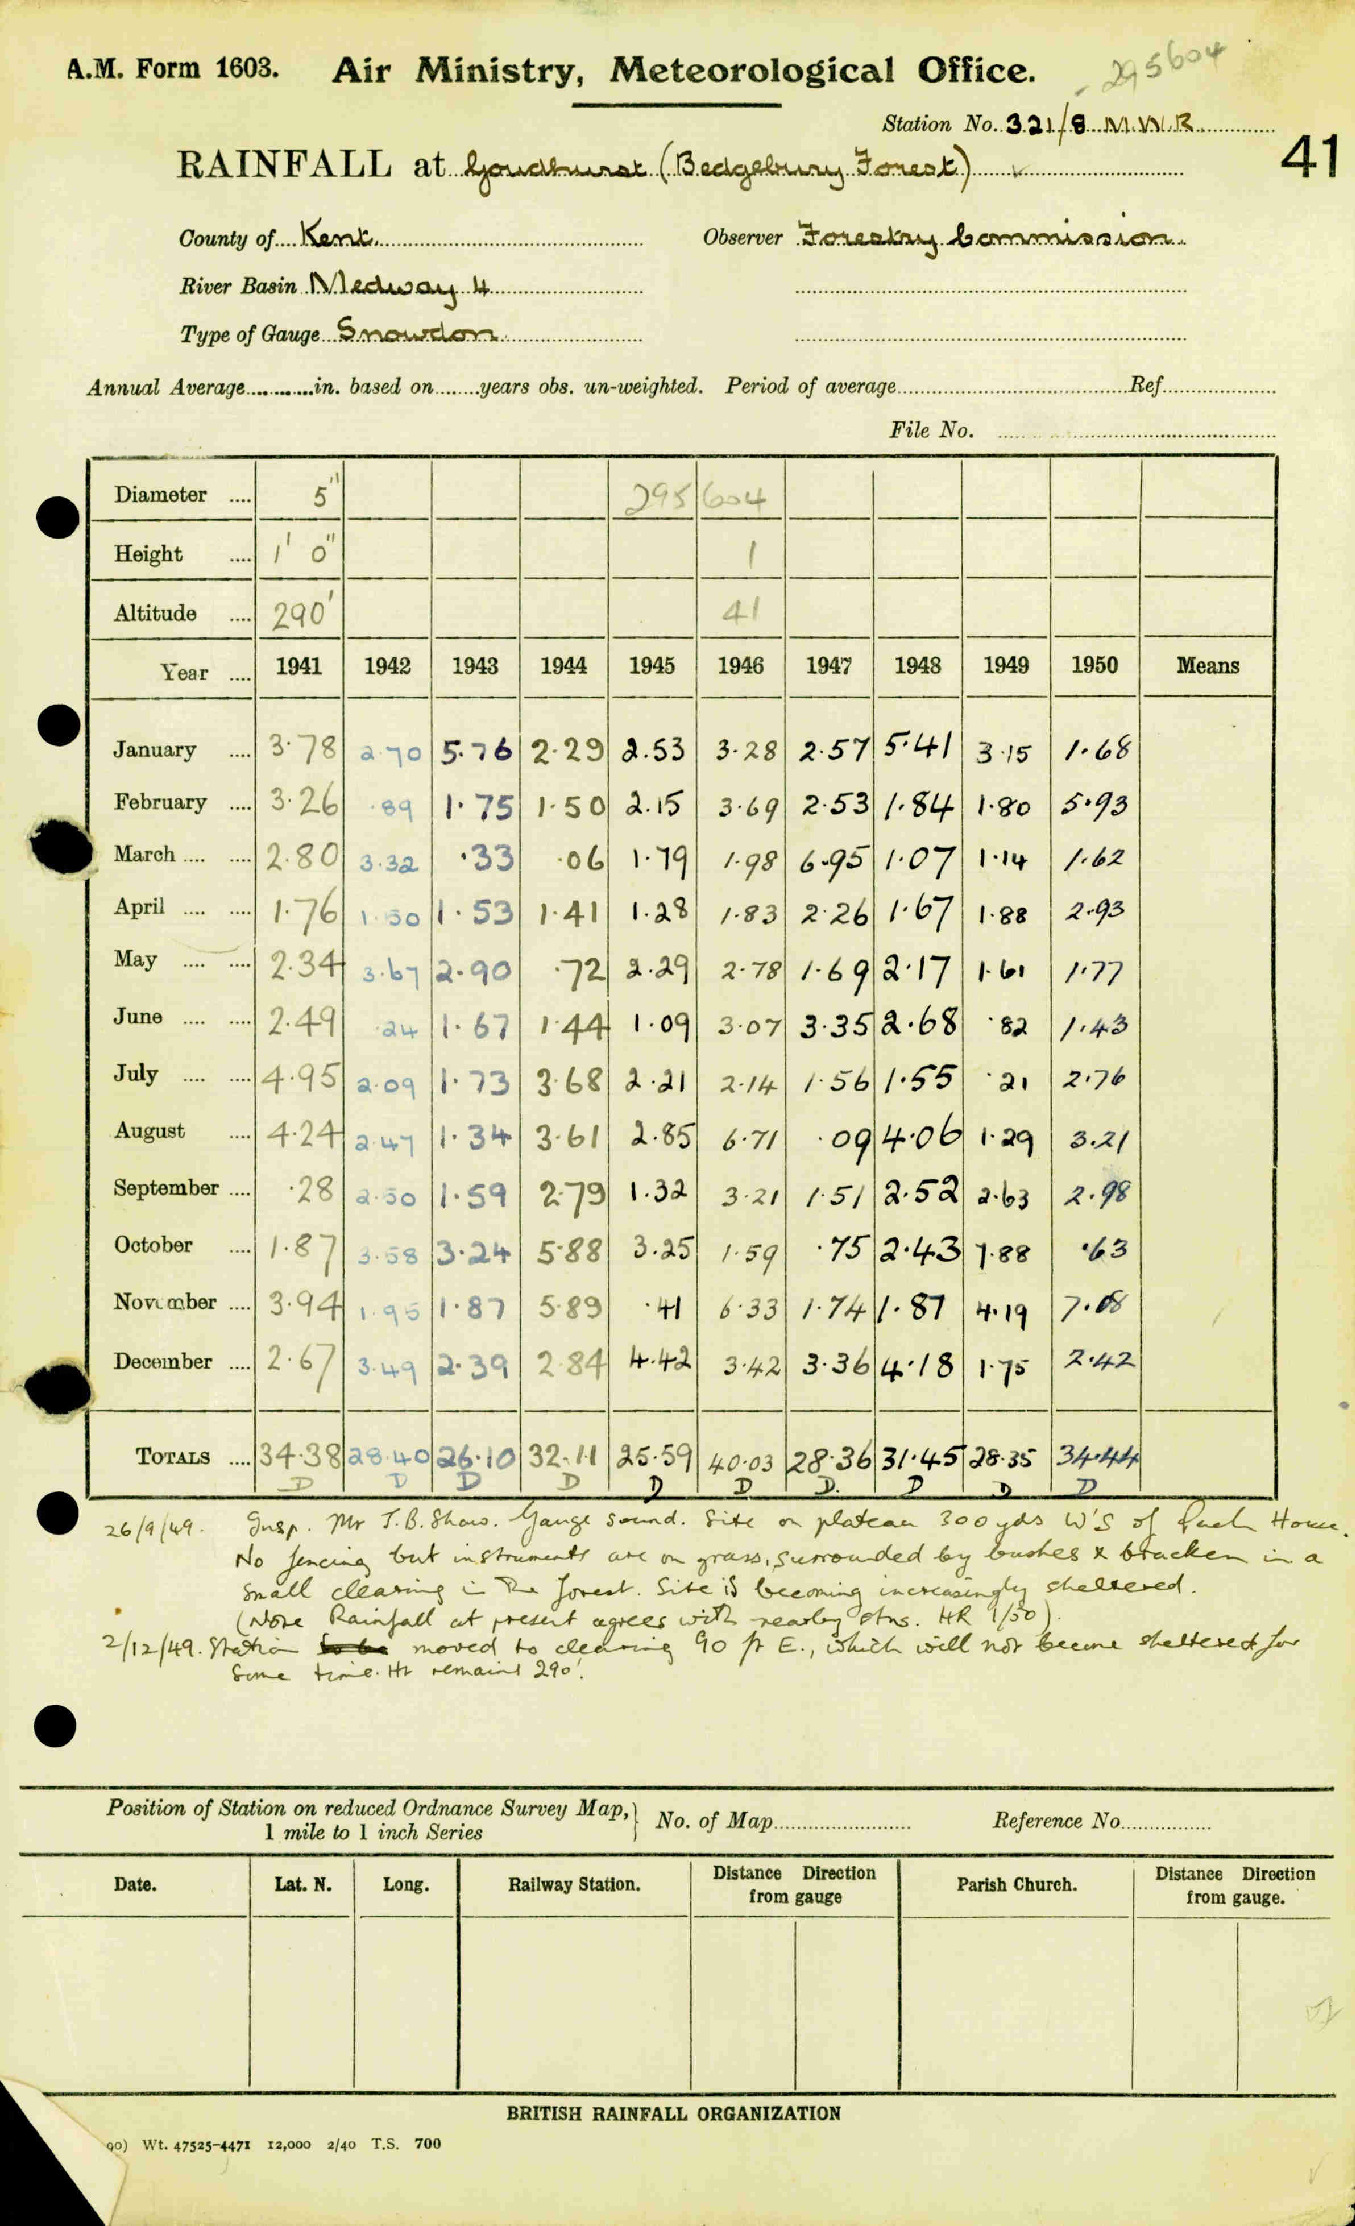 295604
A.M. Form 1603. Air Ministry, Meteorological Office.
Station No. 321/8 M.W.R.
41
RAINFALL at Goudhurst (Bedgebury Forest)
County of Kent. Observer Forestry Commission.
River Basin Medway 4
Type of Gauge Snowdon.
Annual Average in. based on years obs. un-weighted. Period of average Ref.
File No.
Diameter 5" 295604
Height 1' 0" 1
Altitude 290' 41
Year 1941 1942 1943 1944 1945 1946 1947 1948 1949 1950 Means
January 3.78 2.70 5.76 2.29 2.53 3.28 2.57 5.41 3.15 1.68
February 3.26 .89 1.75 1.50 2.15 3.69 2.53 1.84 1.80 5.93
March 2.80 3.32 .33 .06 1.79 1.98 6.95 1.07 1.14 1.62
April 1.76 1.50 1.53 1.41 1.28 1.83 2.26 1.67 1.88 2.93
May 2.34 3.67 2.90 .72 2.29 2.78 1.69 2.17 1.61 1.77
June 2.49 .24 1.67 1.44 1.09 3.07 3.35 2.68 .82 1.43
July 4.95 2.09 1.73 3.68 2.21 2.14 1.56 1.55 .21 2.76
August 4.24 2.47 1.34 3.61 2.85 6.71 .09 4.06 1.29 3.21
September .28 2.50 1.59 2.79 1.32 3.21 1.51 2.52 2.63 2.98
October 1.87 3.58 3.24 5.88 3.25 1.59 .75 2.43 7.88 .63
November 3.94 1.95 1.87 5.89 .41 6.33 1.74 1.87 4.19 7.08
December 2.67 3.49 2.39 2.84 4.42 3.42 3.36 4.18 1.75 2.42
TOTALS 34.38 28.40 26.10 32.11 25.59 40.03 28.36 31.45 28.35 34.44
D D D D D D D. D D D
26/9/49. Insp. Mr J.B. Shaw. Gauge sound. Site on plateau 300 yds W'S of House.
No fencing but instruments are on grass, surrounded by bushes & bracken in a
small clearing in the forest. Site is becoming increasingly sheltered.
(Note Rainfall at present agrees with nearby stns. HR 1/50)
2/12/49. Station moved to clearing 90 ft E., which will not become sheltered for
some time. Ht remains 290'.
Position of Station on reduced Ordnance Survey Map, No. of Map Reference No.
1 mile to 1 inch Series
Date. Lat. N. Long. Railway Station. Distance Direction from gauge Parish Church. Distance Direction from gauge.
BRITISH RAINFALL ORGANIZATION
90) Wt. 47525-4471 12,000 2/40 T.S. 700